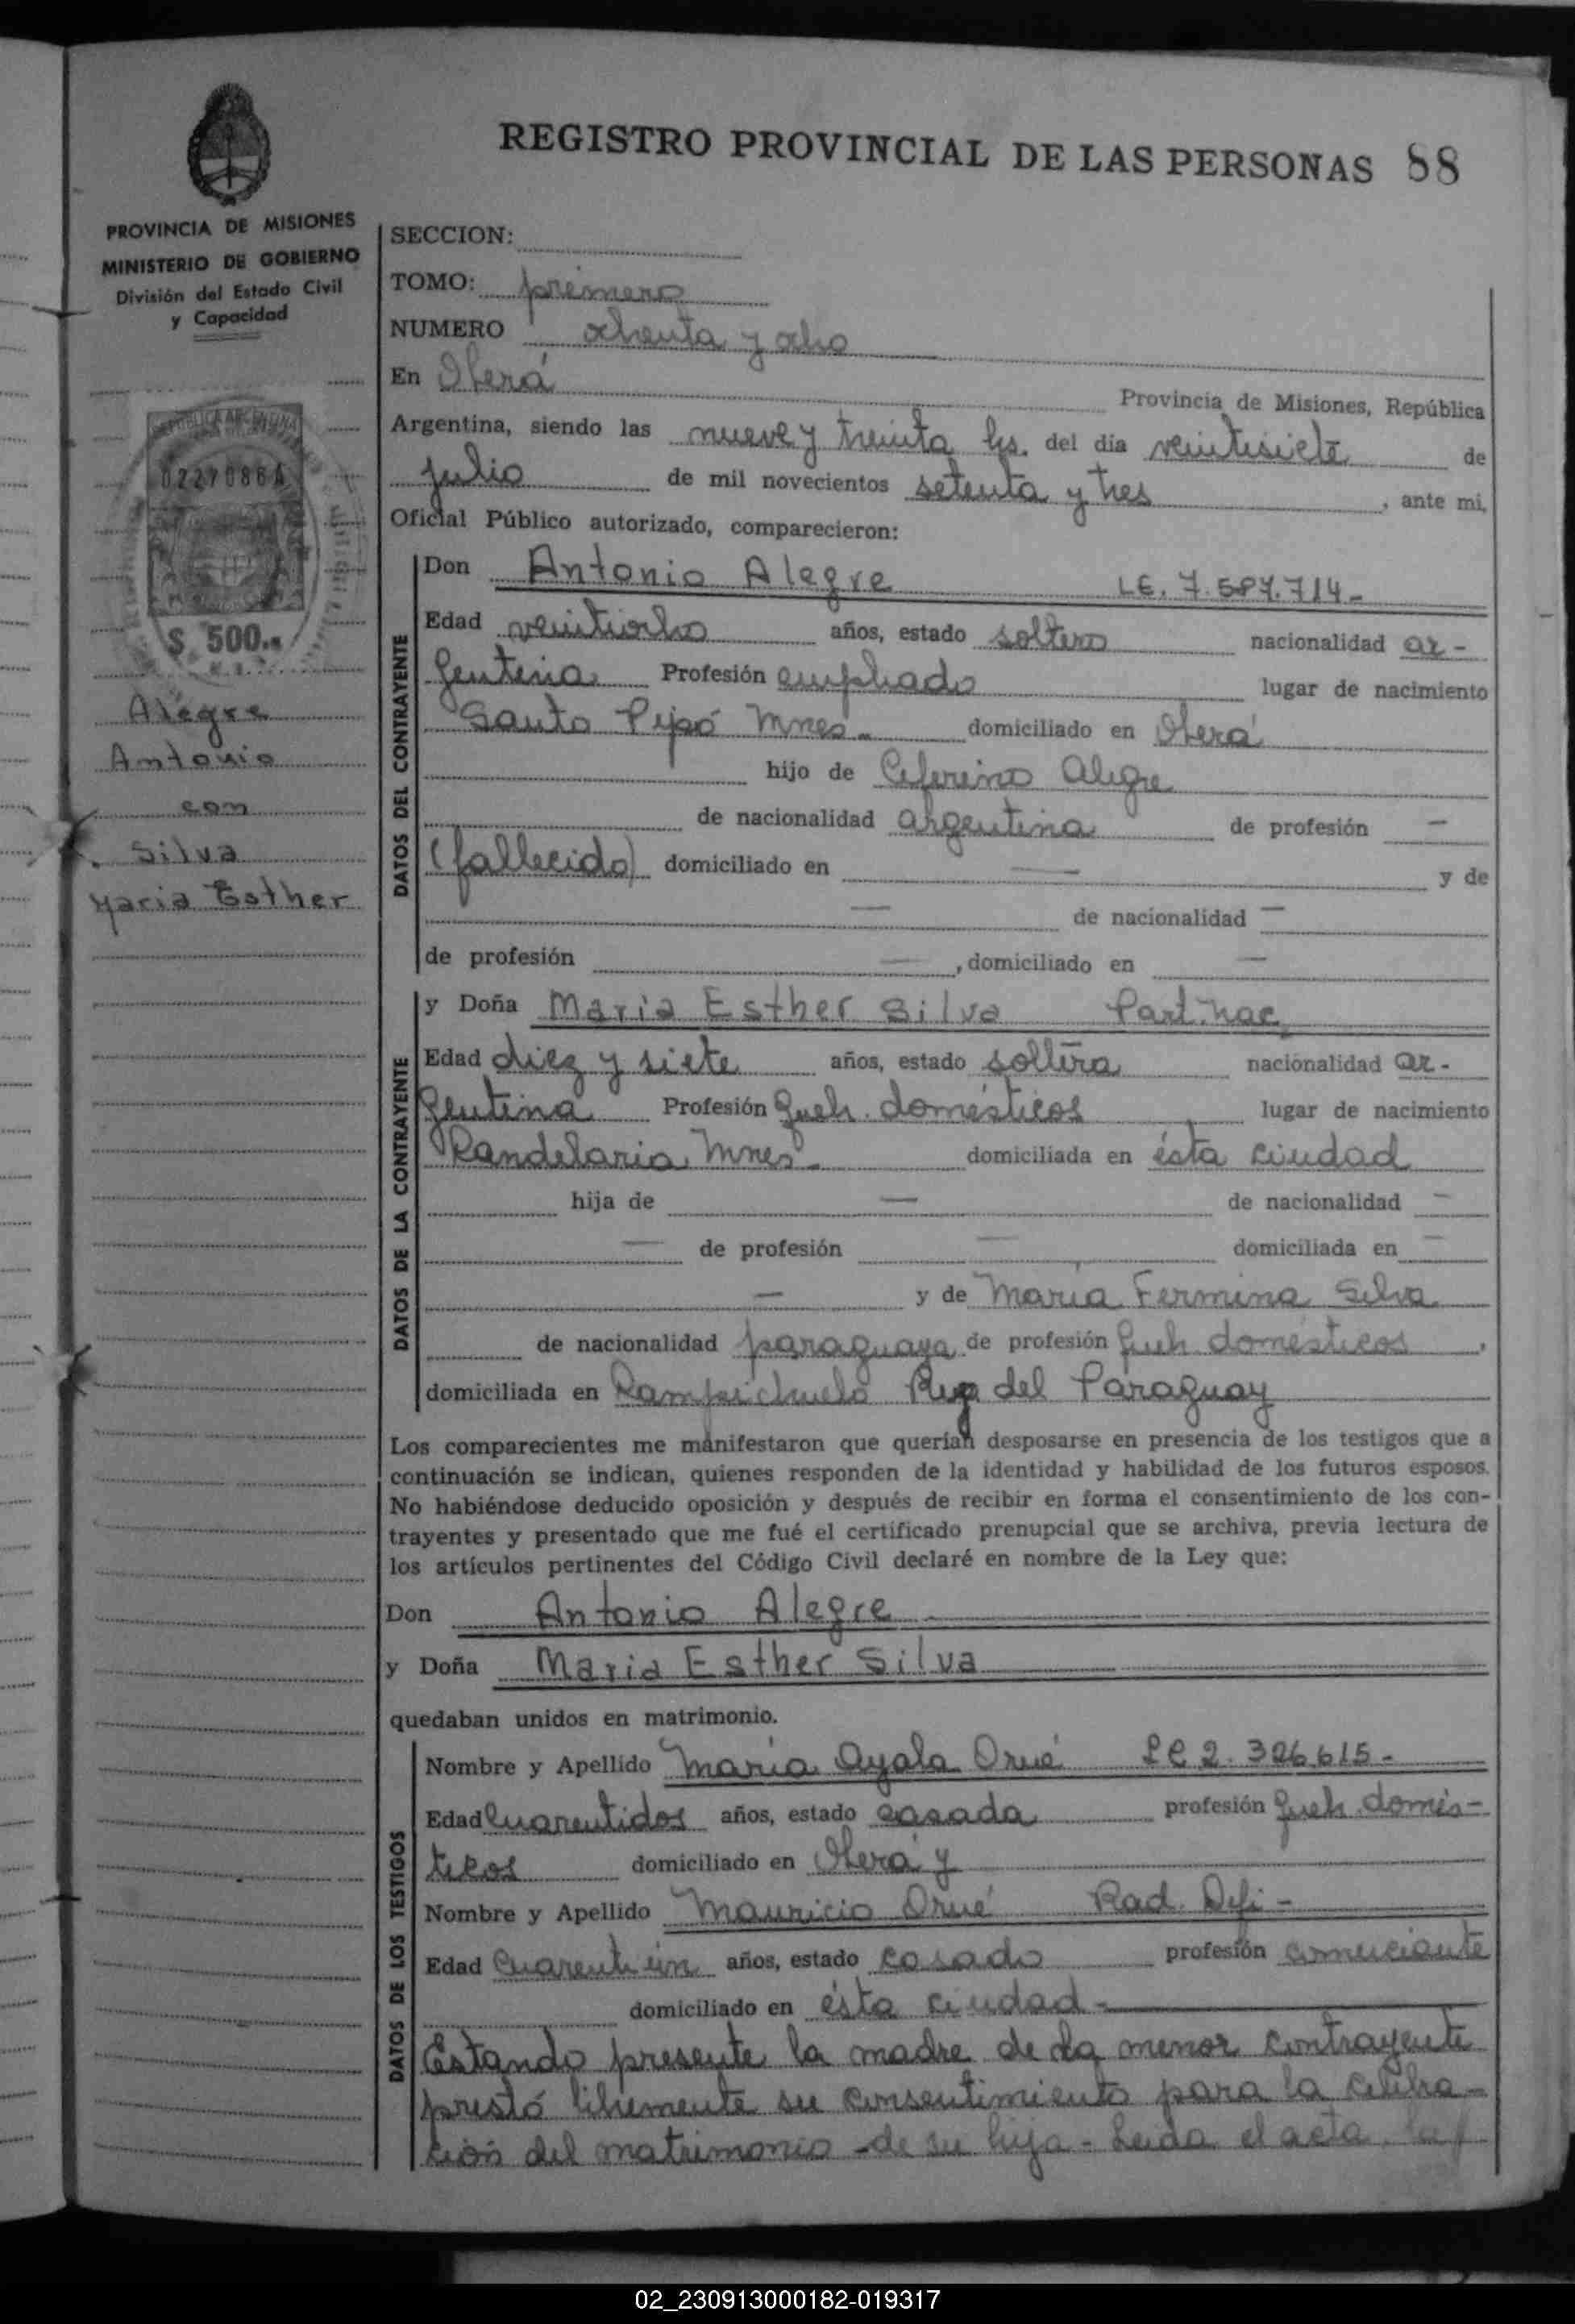 REGISTRO PROVINCIAL DE LAS PERSONAS 88
PROVINCIA DE MISIONES
MINISTERIO DE GOBIERNO
División del Estado Civil
y Capacidad
REPUBLICA ARGENTINA
02270864
$ 500.-
Alegre
Antonio
con
Silva
Maria Esther
SECCION:
TOMO: primero
NUMERO ochenta y ocho
En Oberá Provincia de Misiones, República
Argentina, siendo las nueve y treinta hs. del día veintisiete de
julio de mil novecientos setenta y tres, ante mi,
Oficial Público autorizado, comparecieron:
DATOS DEL CONTRAYENTE
Don Antonio Alegre LE. 7.587.714-
Edad veintiocho años, estado soltero nacionalidad ar-
gentina Profesión empleado lugar de nacimiento
Santo Pipó Mnes.- domiciliado en Oberá
hijo de Ceferino Alegre
de nacionalidad argentina de profesión —
(fallecido) domiciliado en — y de
— de nacionalidad —
de profesión —, domiciliado en —
DATOS DE LA CONTRAYENTE
y Doña Maria Esther Silva Part. nac.
Edad diez y siete años, estado soltera nacionalidad ar-
gentina Profesión queh. domésticos lugar de nacimiento
Candelaria, Mnes.- domiciliada en ésta ciudad
hija de — de nacionalidad —
— de profesión — domiciliada en —
— y de María Fermina Silva
de nacionalidad paraguaya de profesión queh domésticos,
domiciliada en Campichuelo Rep. del Paraguay
Los comparecientes me manifestaron que querían desposarse en presencia de los testigos que a
continuación se indican, quienes responden de la identidad y habilidad de los futuros esposos.
No habiéndose deducido oposición y después de recibir en forma el consentimiento de los con-
trayentes y presentado que me fué el certificado prenupcial que se archiva, previa lectura de
los artículos pertinentes del Código Civil declaré en nombre de la Ley que:
Don Antonio Alegre
y Doña Maria Esther Silva
quedaban unidos en matrimonio.
DATOS DE LOS TESTIGOS
Nombre y Apellido María Ayala Orué LC 2.326.615-
Edad Cuarentidos años, estado casada profesión queh. domés-
ticos domiciliado en Oberá y
Nombre y Apellido Mauricio Orué Rad. Defi-
Edad Cuarentiún años, estado casado profesión comerciante
domiciliado en ésta ciudad-
Estando presente la madre de la menor contrayente
prestó libremente su consentimiento para la celebra-
ción del matrimonio de su hija- Leída el acta, la
02_230913000182-019317